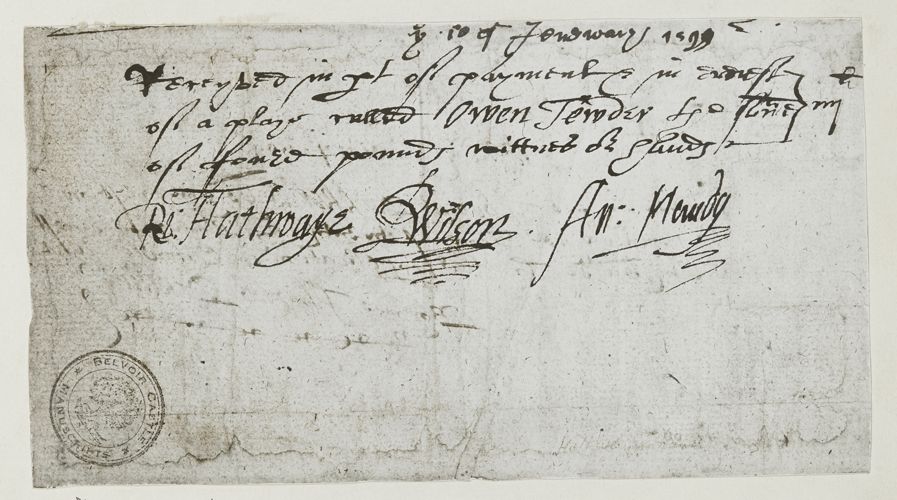 ye 10 of Jenewary 1599
Receyved in pt of payment & in ernest
of a playe called Owen Tewder the some
of foure pounds wittnes or hands
iiij li
Re. Hathwaye RWilson. An: Mundy
BELVOIR CASTLE MANUSCRIPTS